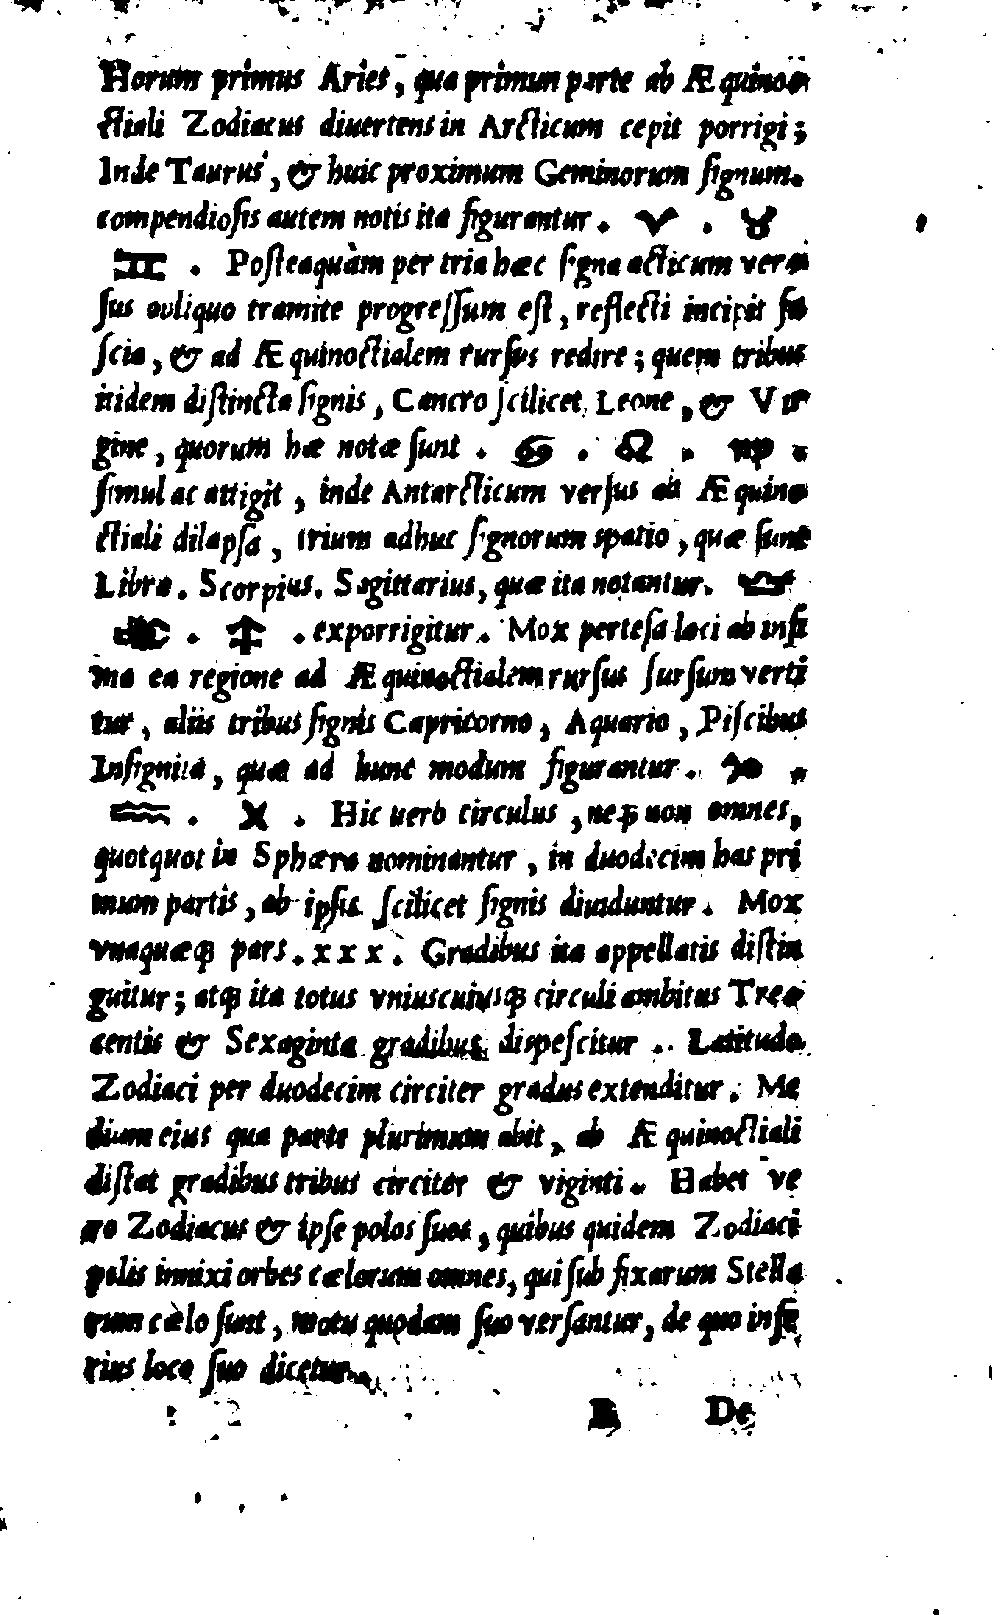 Horum primus Aries, qua primum parte ab Æquino-
ctiali Zodiacus diuertens in Arcticum cepit porrigi;
Inde Taurus, & huic proximum Geminorum ſignum.
compendioſis autem notis ita figurantur. ♈ . ♉
♊ . Poſteaquàm per tria hæc ſigna acticum ver-
ſus obliquo tramite progreſſum eſt, reflecti incipit fa
ſcia, & ad Æquinoctialem rurſus redire; quem tribus
itidem diſtincta ſignis, Cancro ſcilicet, Leone, & Vir
gine, quorum hæ notæ ſunt . ♋ . ♌ . ♍ .
ſimul ac attigit, inde Antarcticum verſus ab Æquino
ctiali dilapſa, trium adhuc ſignorum spatio, quæ ſunt
Libra. Scorpius. Sagittarius, quæ ita notantur. ♎
♏ . ♐ . exporrigitur. Mox perteſa loci ab infi
ma ea regione ad Æquinoctialem rurſus ſurſum verti
tur, aliis tribus ſignis Capricorno, Aquario, Piſcibus
Inſignita, quæ ad hunc modum figurantur. ♑ .
♒ . ♓ . Hic uerò circulus, neqꝫ non omnes,
quotquot in Sphæra nominantur, in duodecim has pri
mum partis, ab ipſis ſcilicet ſignis diuiduntur. Mox
vnaquæqꝫ pars. x x x . Gradibus ita appellatis diſtin
guitur; atqꝫ ita totus vniuscuiusqꝫ circuli ambitus Tre
centis & Sexaginta gradibus diſpeſcitur . Latitudo
Zodiaci per duodecim circiter gradus extenditur. Me
dium eius qua parte plurimum abit, ab Æquinoctiali
diſtat gradibus tribus circiter & viginti. Habet ve
ro Zodiacus & ipſe polos ſuos, quibus quidem Zodiaci
polis innixi orbes cælorum omnes, qui ſub fixarum Stella
rum cælo ſunt, motu quodam ſuo verſantur, de quo infe
rius loco ſuo dicetur.
B De